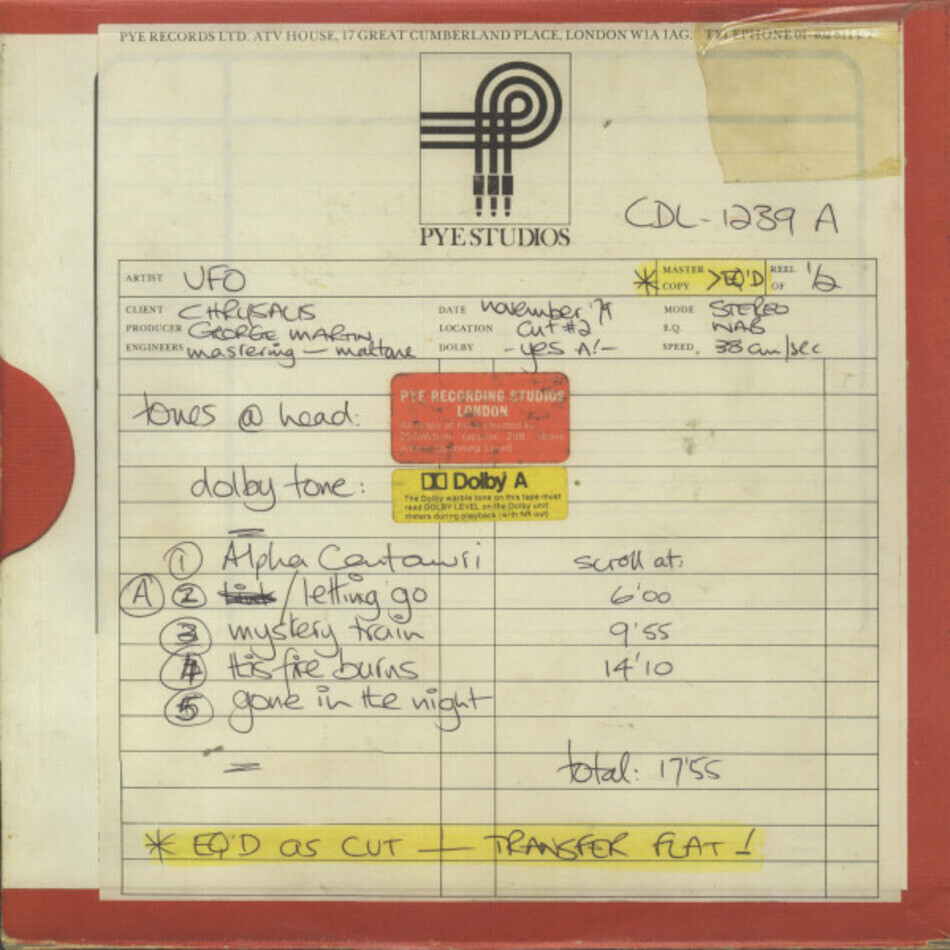 PYE RECORDS LTD. ATV HOUSE, 17 GREAT CUMBERLAND PLACE, LONDON W1A 1AG. TELEPHONE 01-
PYE STUDIOS
CDL-1239 A
ARTIST UFO * MASTER COPY >EQ'D REEL OF 1/2
CLIENT CHRYSALIS DATE november '79 MODE STEREO
PRODUCER GEORGE MARTIN LOCATION Cut #2 E.Q. NAB
ENGINEERS mastering - maltane DOLBY -yes A!- SPEED. 38 cm/sec
tones @ head:
PYE RECORDING STUDIOS
LONDON
dolby tone:
Dolby A
The Dolby warble tone on this tape must
read DOLBY LEVEL on the Dolby unit
meters during playback (with NR out)
1 Alpha Centauri scroll at:
A 2 /letting go 6'00
3 mystery train 9'55
4 this fire burns 14'10
5 gone in the night
total: 17'55
* EQ'D as CUT — TRANSFER FLAT!